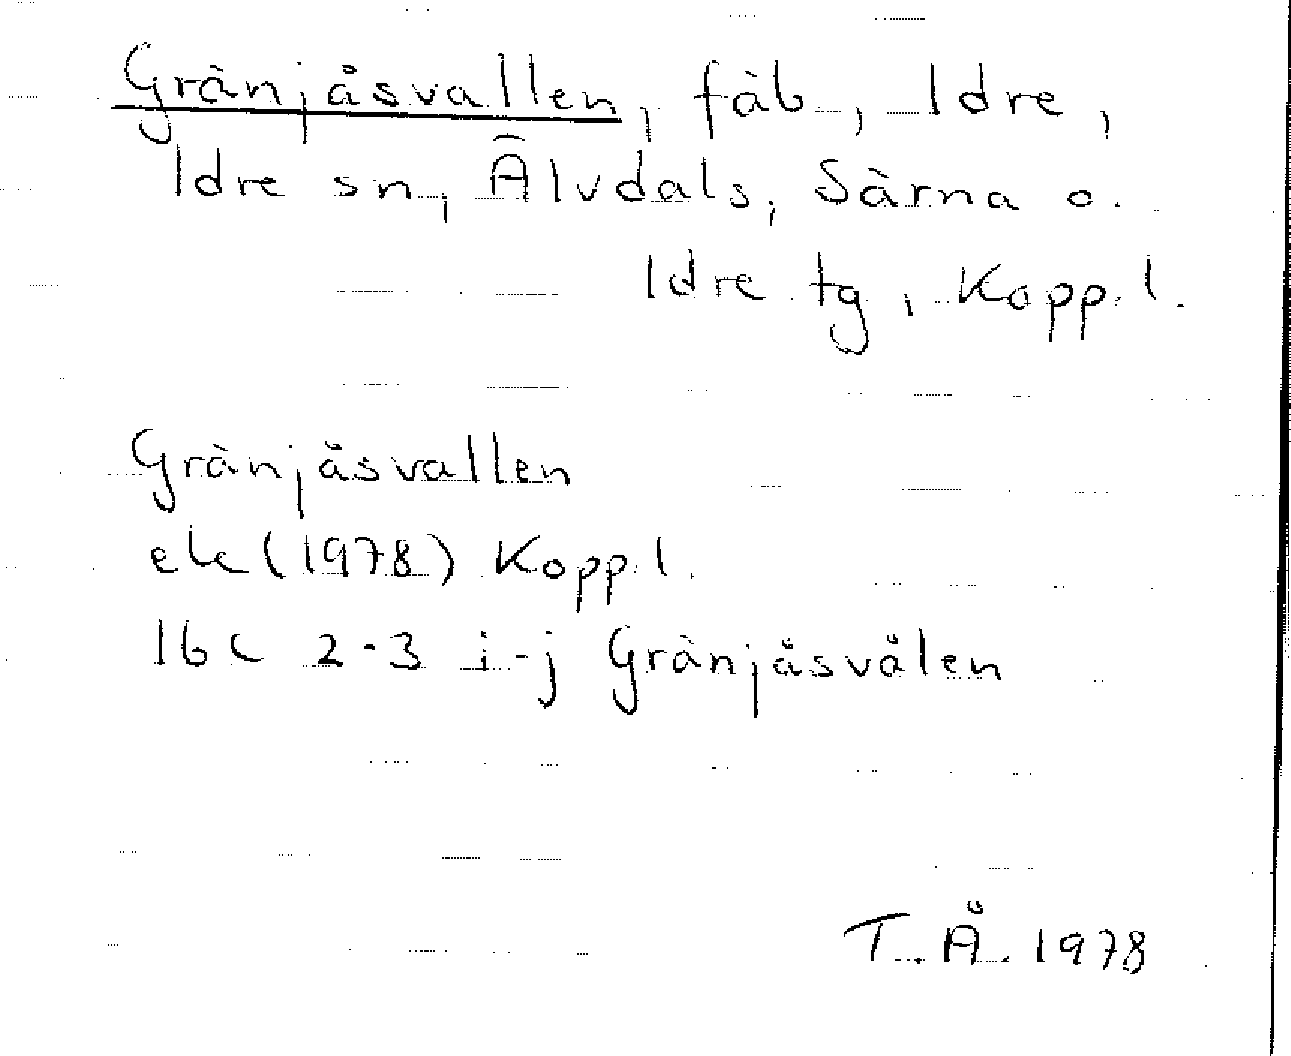 Gränjåsvallen, fäb., Idre,
Idre sn, Älvdals, Särna o.
Idre tg, Kopp. l.
Gränjåsvallen
ek (1978) Kopp. l.
16 C 2-3 i-j Gränjåsvålen
T. Å. 1978